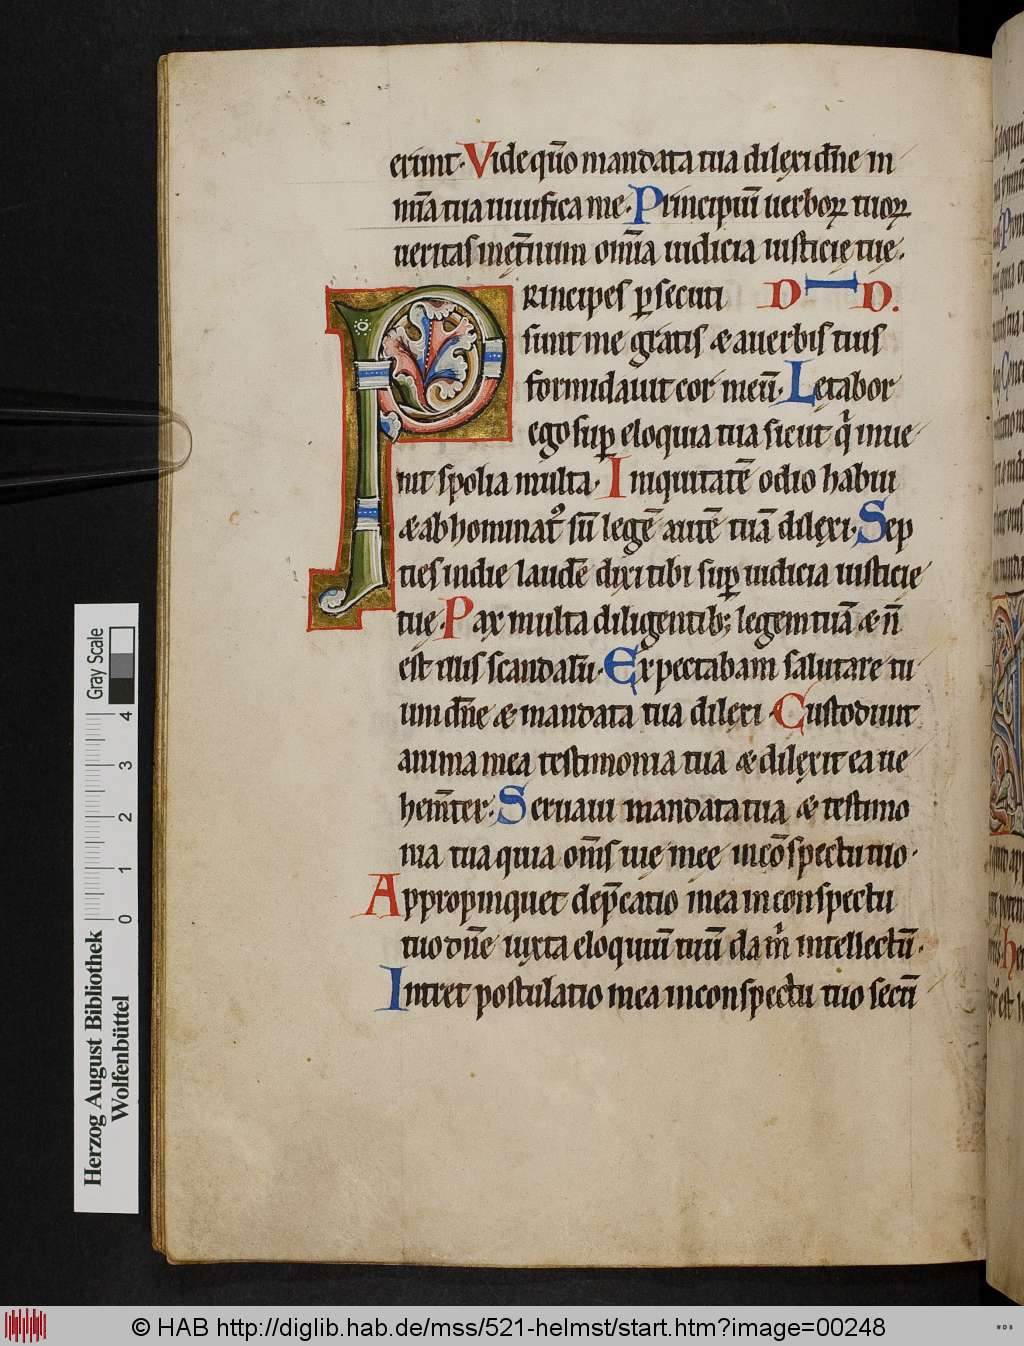 erunt. Vide qūo mandata tua dilęxi dn̄e in
mīa tua uiuifica me. Principiū uerboꝝ tuoꝝ
ueritas inęt̄nuum om̄ia iudicia iusticię tuę.
Principes ꝑsecuti D I D.
sunt me gratis & auerbis tuis
formidauit cor meū. Lętabor
ego suꝑ eloquia tua sicut q̇ inue
nit spolia multa. Iniquitatē odio habui
& abhominat᷒ sū legē autē tuā dilęxi. Sep
ties indie laudē dixi tibi suꝑ iudicia iusticię
tuę. Pax multa diligentib; legem tuā & n̄
est illis scandalū. Expectabam salutare tu
um dn̄e & mandata tua dilexi. Custodiuit
anima mea testimonia tua & dilęxit ea ue
hem̄ter. Seruaui mandata tua & testimo
nia tua quia om̄s uię meę incōspectu tuo.
Appropinquet dep̄catio mea inconspectu
tuo dn̄e iuxta eloquiū tuū da ṁ intellectū.
Intret postulatio mea inconspectu tuo secū
Herzog August Bibliothek
Wolfenbüttel
0 1 2 3 4
Gray Scale
© HAB http://diglib.hab.de/mss/521-helmst/start.htm?image=00248